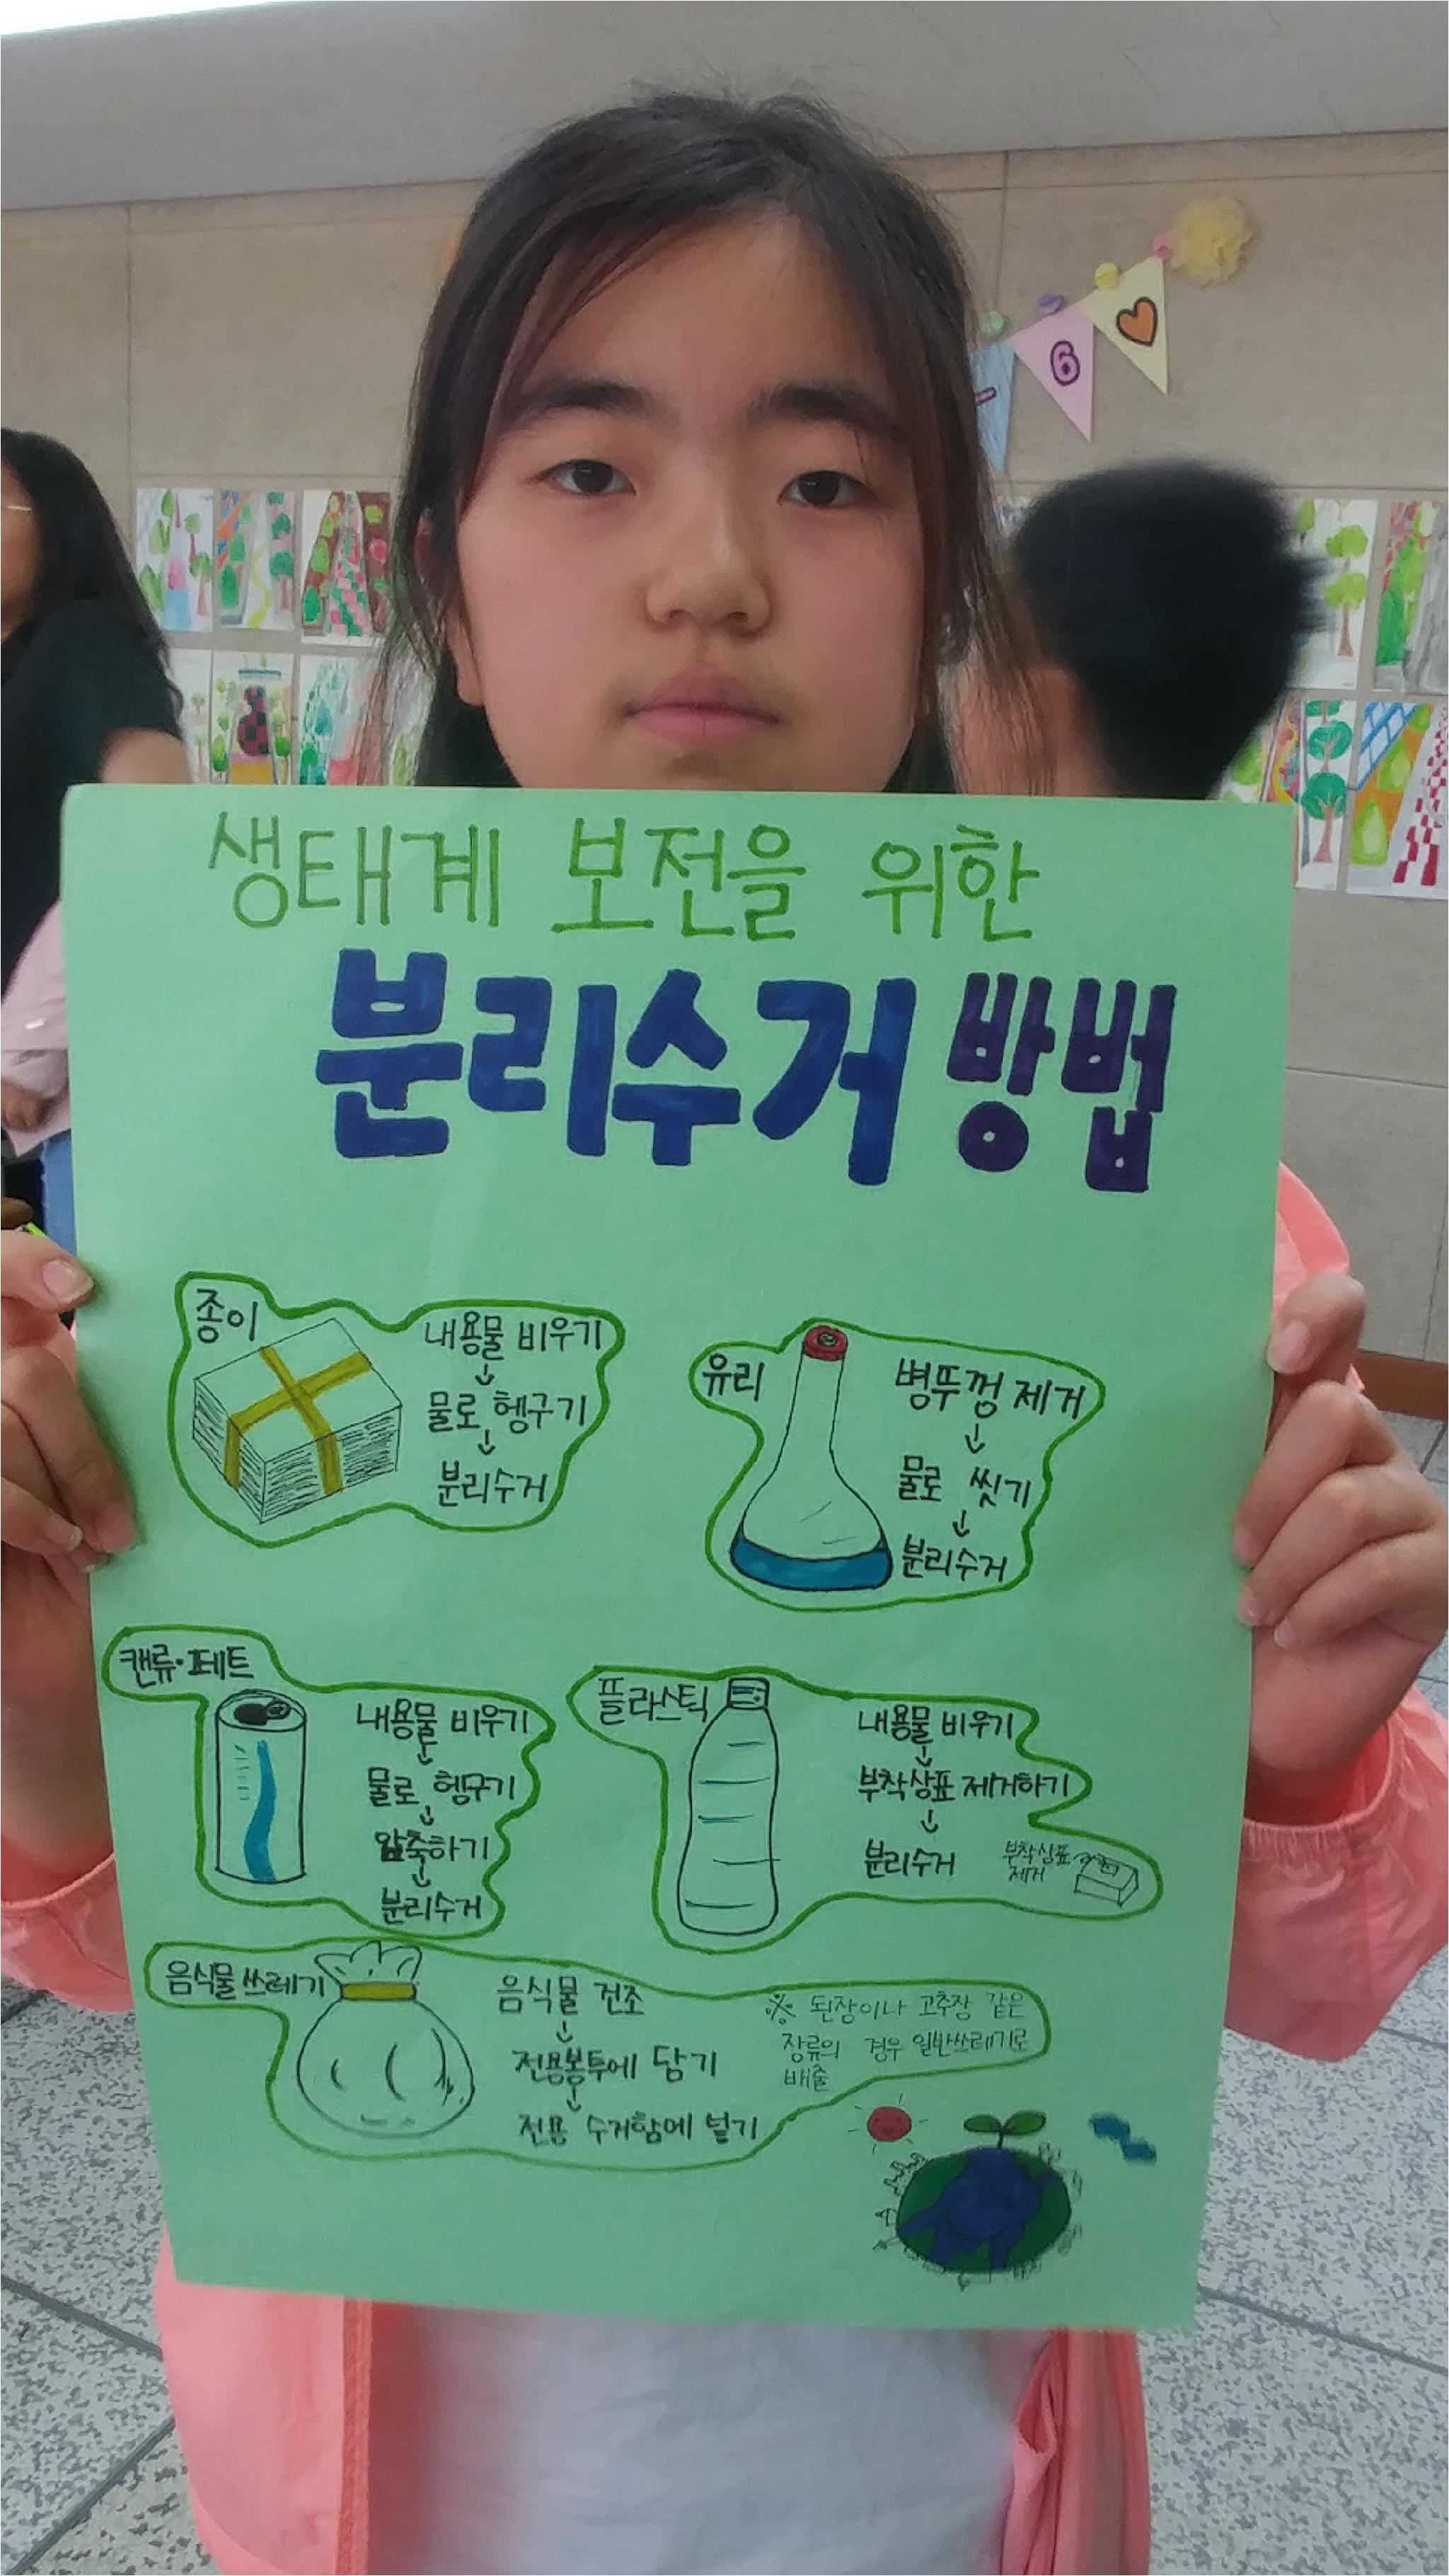 6
생태계 보전을 위한
분리수거 방법
종이
내용물 비우기
↓
물로 헹구기
↓
분리수거
유리
병뚜껑 제거
↓
물로 씻기
↓
분리수거
캔류·페트
내용물 비우기
↓
물로 헹구기
↓
압축하기
↓
분리수거
플라스틱
내용물 비우기
↓
부착상표 제거하기
↓
분리수거
부착상표
제거
음식물 쓰레기
음식물 건조
↓
전용봉투에 담기
↓
전용 수거함에 넣기
※ 된장이나 고추장 같은
장류의 경우 일반쓰레기로
배출